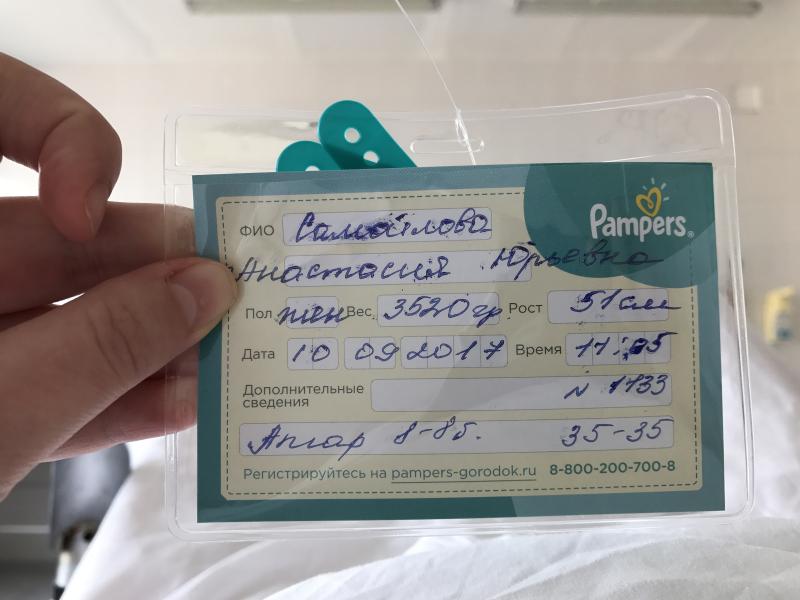 Pampers®
ФИО Самойлова
Анастасия Юрьевна
Пол жен Вес 3520 гр Рост 51 см
Дата 10 09 2017 Время 11:05
Дополнительные сведения N 1733
Апгар 8-8б. 35-35
Регистрируйтесь на pampers-gorodok.ru 8-800-200-700-8